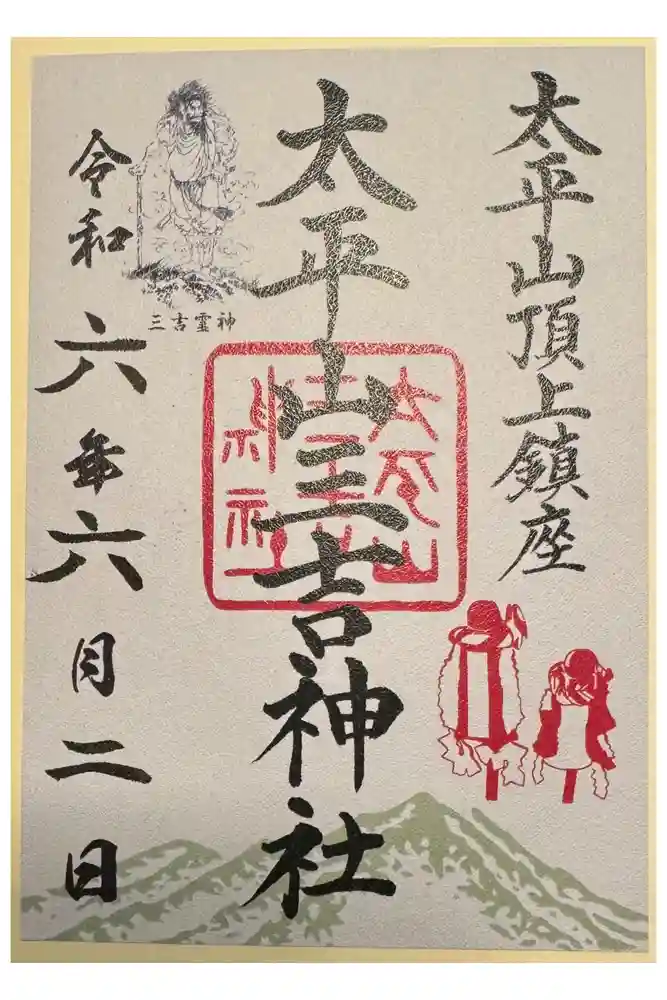 太平山頂上鎮座
太平山三吉神社
太平山
三吉
神社
三吉霊神
令和六年六月二日